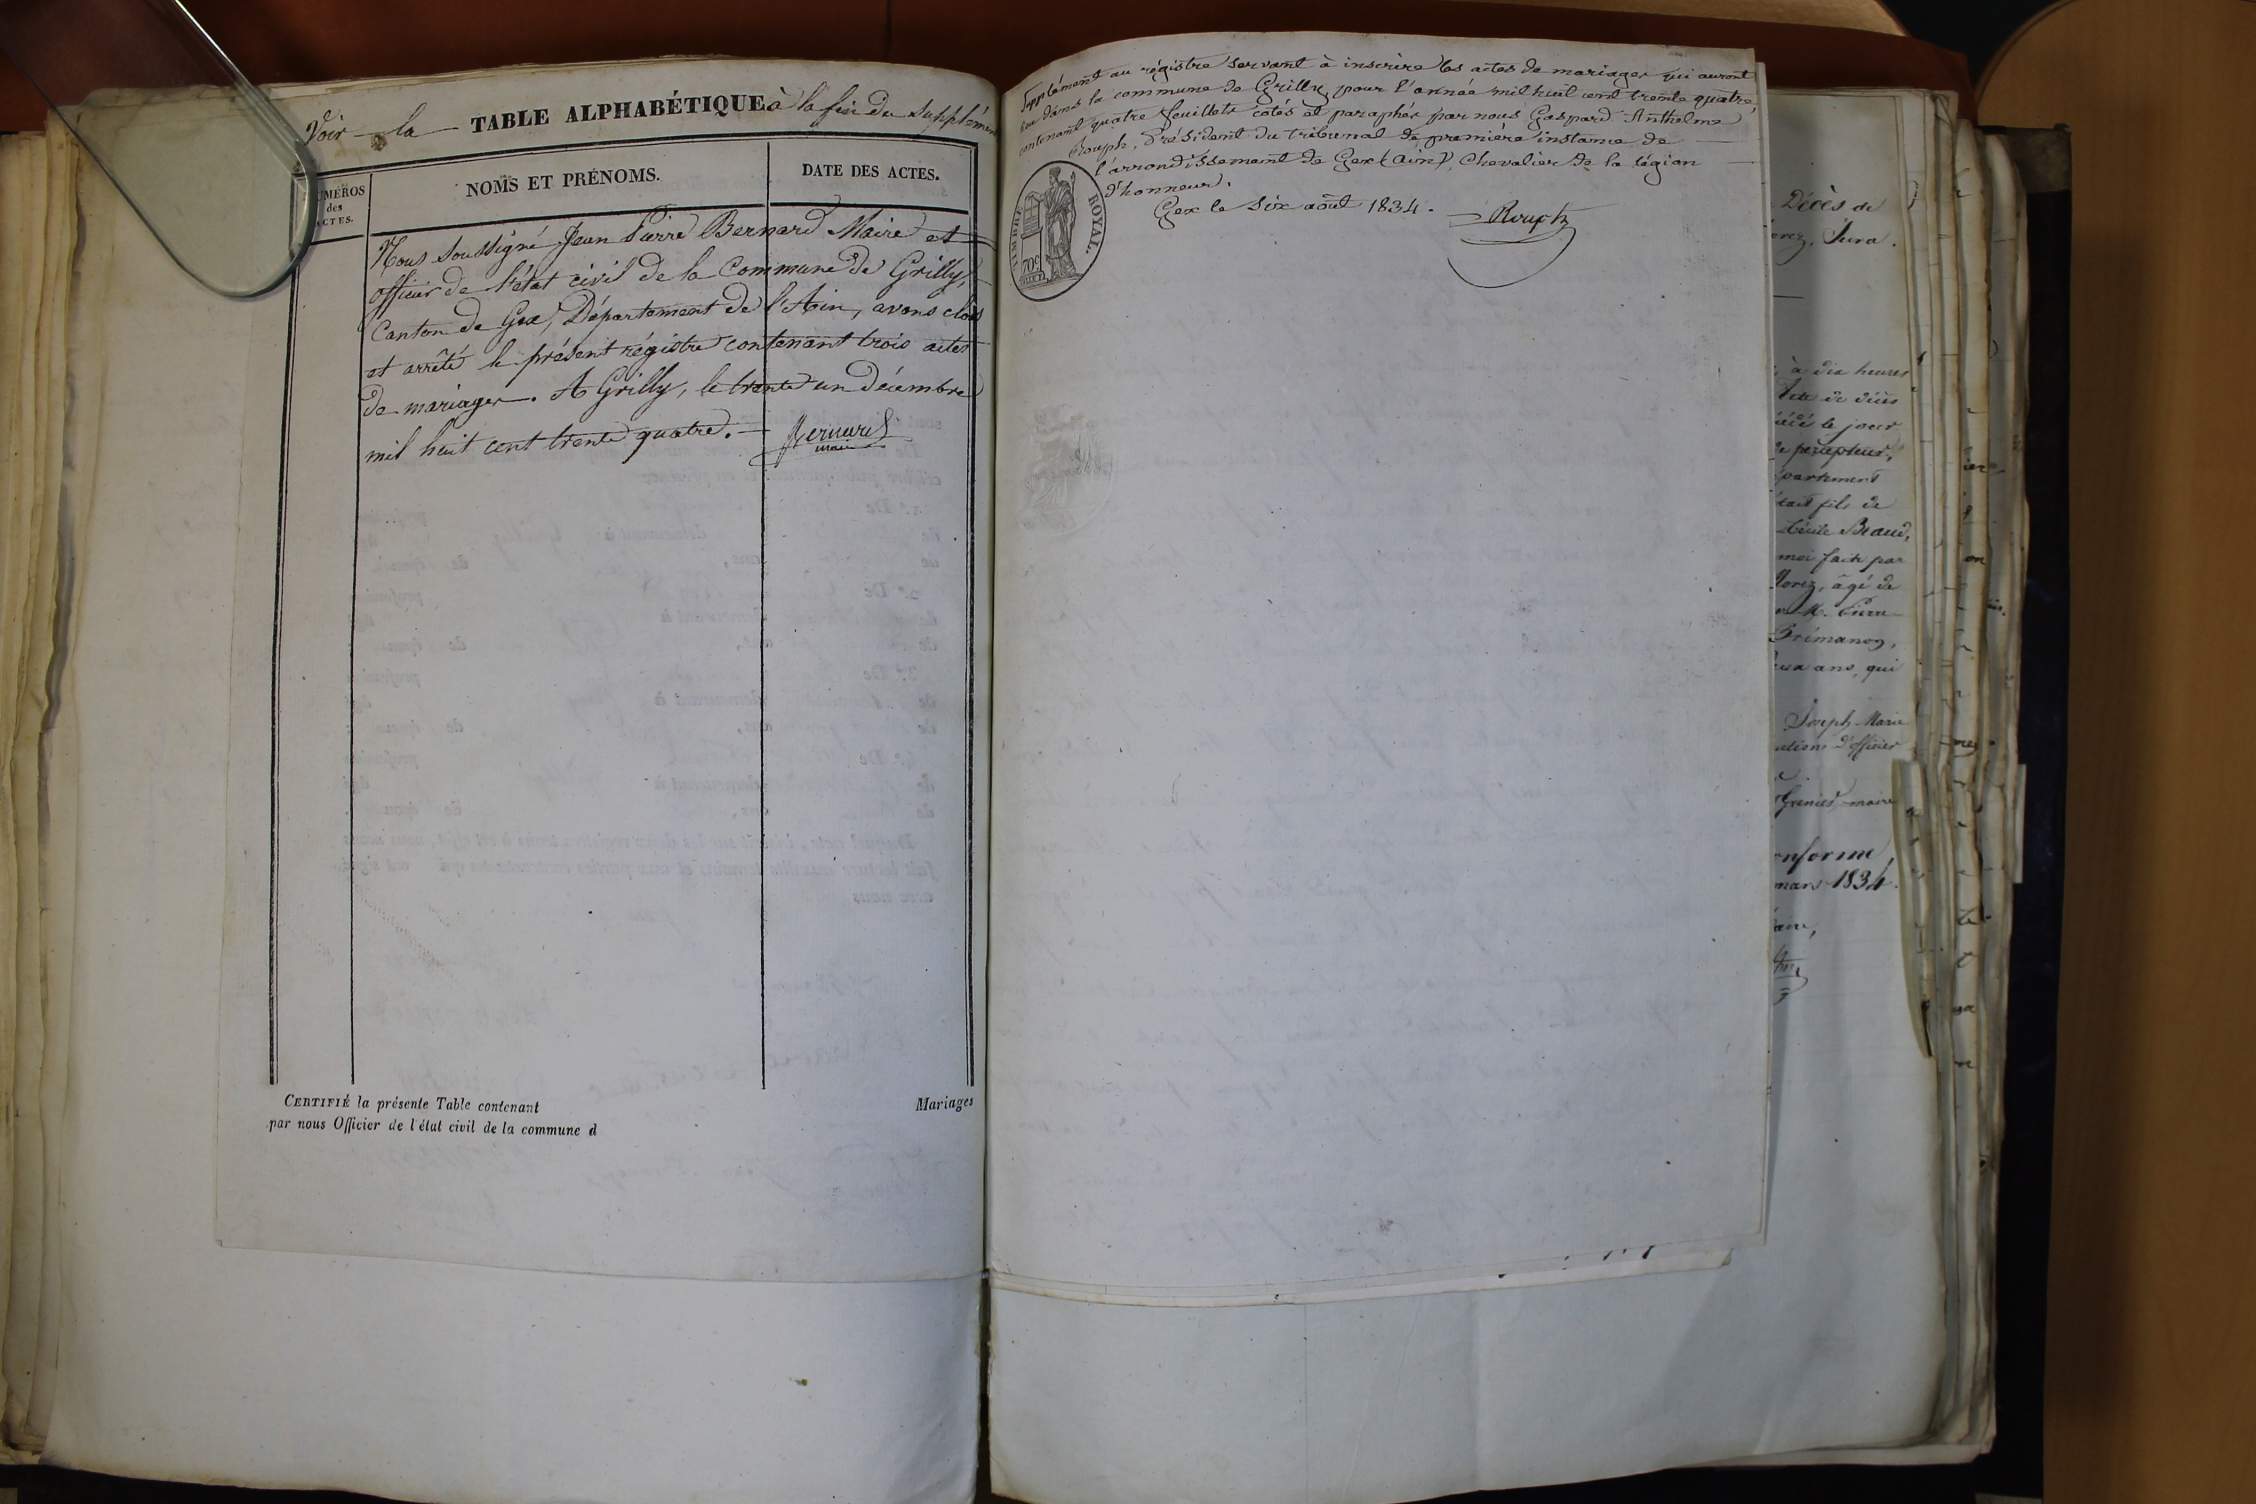 Voir la TABLE ALPHABÉTIQUE à la fin du supplément
NUMÉROS
des
ACTES.
NOMS ET PRÉNOMS.
DATE DES ACTES.
Nous soussigné Jean Pierre Bernard Maire et
officier de l'état civil de la Commune de Grilly,
Canton de Gex, Département de l'Ain, avons clos
et arrêté le présent régistre contenant trois actes
de mariages. A Grilly, le trente un décembre
mil huit cent trente quatre.
Bernard
maire
CERTIFIÉ la présente Table contenant
Mariages
par nous Officier de l'état civil de la commune d
Supplément au régistre servant à inscrire les actes de mariages qui auront
lieu dans la commune de Grilly pour l'année mil huit cent trente quatre,
contenant quatre feuillets cotés et paraphés par nous Gaspard Anthelme
Rouph, Président du tribunal de première instance de
l'arrondissement de Gex (Ain), Chevalier de la légion
d'honneur.
Gex le six août 1834.
Rouph
TIMBRE ROYAL.
70c
Décès de
Jura.
à dix heures
de décès
le jour
percepteur,
fils de
Cécile
moi faite par
Morez, âgé de
M. Pierre
Prémanon,
ans, qui
Joseph Marie
d'officier
maire
mars 1834.